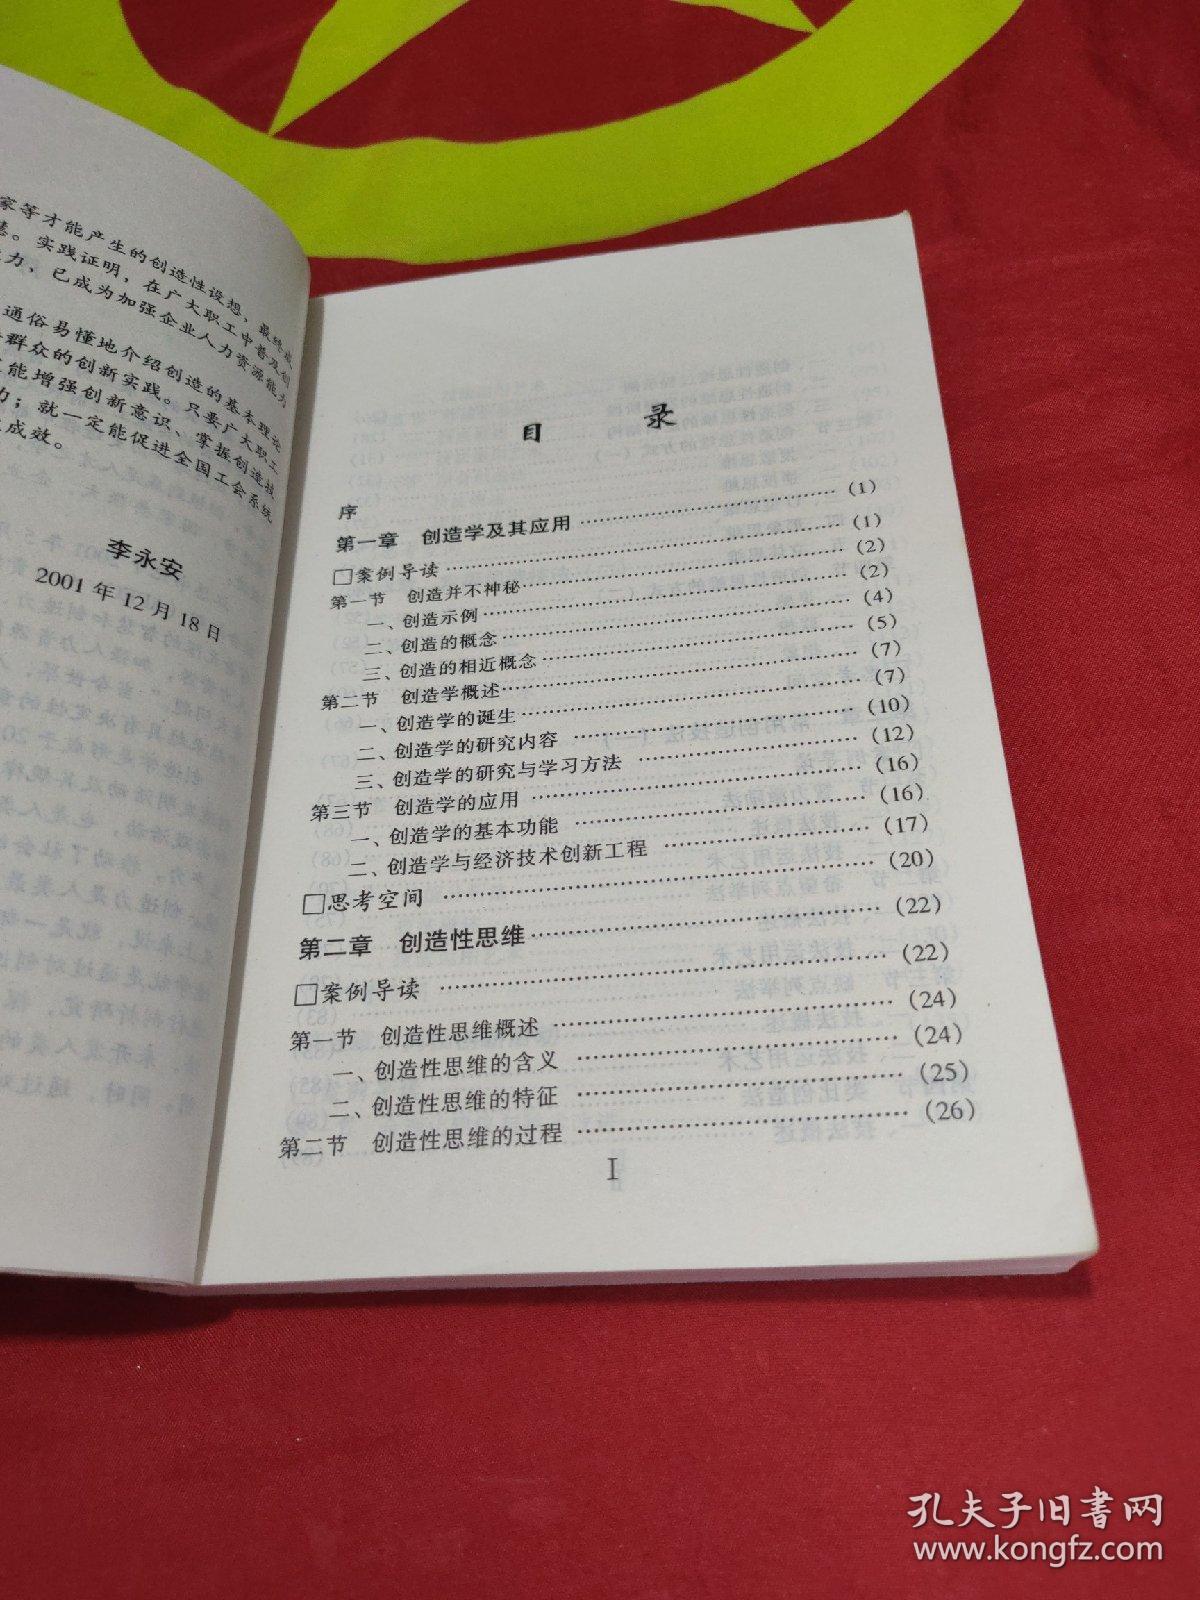 家等才能产生的创造性设想，最终成
慧。实践证明，在广大职工中普及创
力，已成为加强企业人力资源能力
通俗易懂地介绍创造的基本理论
群众的创新实践。只要广大职工
能增强创新意识、掌握创造技
力；就一定能促进全国工会系统
成效。
李永安
2001年12月18日
目 录
序
第一章 创造学及其应用 (1)
□案例导读 (1)
第一节 创造并不神秘 (2)
一、创造示例 (2)
二、创造的概念 (4)
三、创造的相近概念 (5)
第二节 创造学概述 (7)
一、创造学的诞生 (7)
二、创造学的研究内容 (10)
三、创造学的研究与学习方法 (12)
第三节 创造学的应用 (16)
一、创造学的基本功能 (16)
二、创造学与经济技术创新工程 (17)
□思考空间 (20)
第二章 创造性思维 (22)
□案例导读 (22)
第一节 创造性思维概述 (24)
一、创造性思维的含义 (24)
二、创造性思维的特征 (25)
第二节 创造性思维的过程 (26)
I
孔夫子旧书网
www.kongfz.com